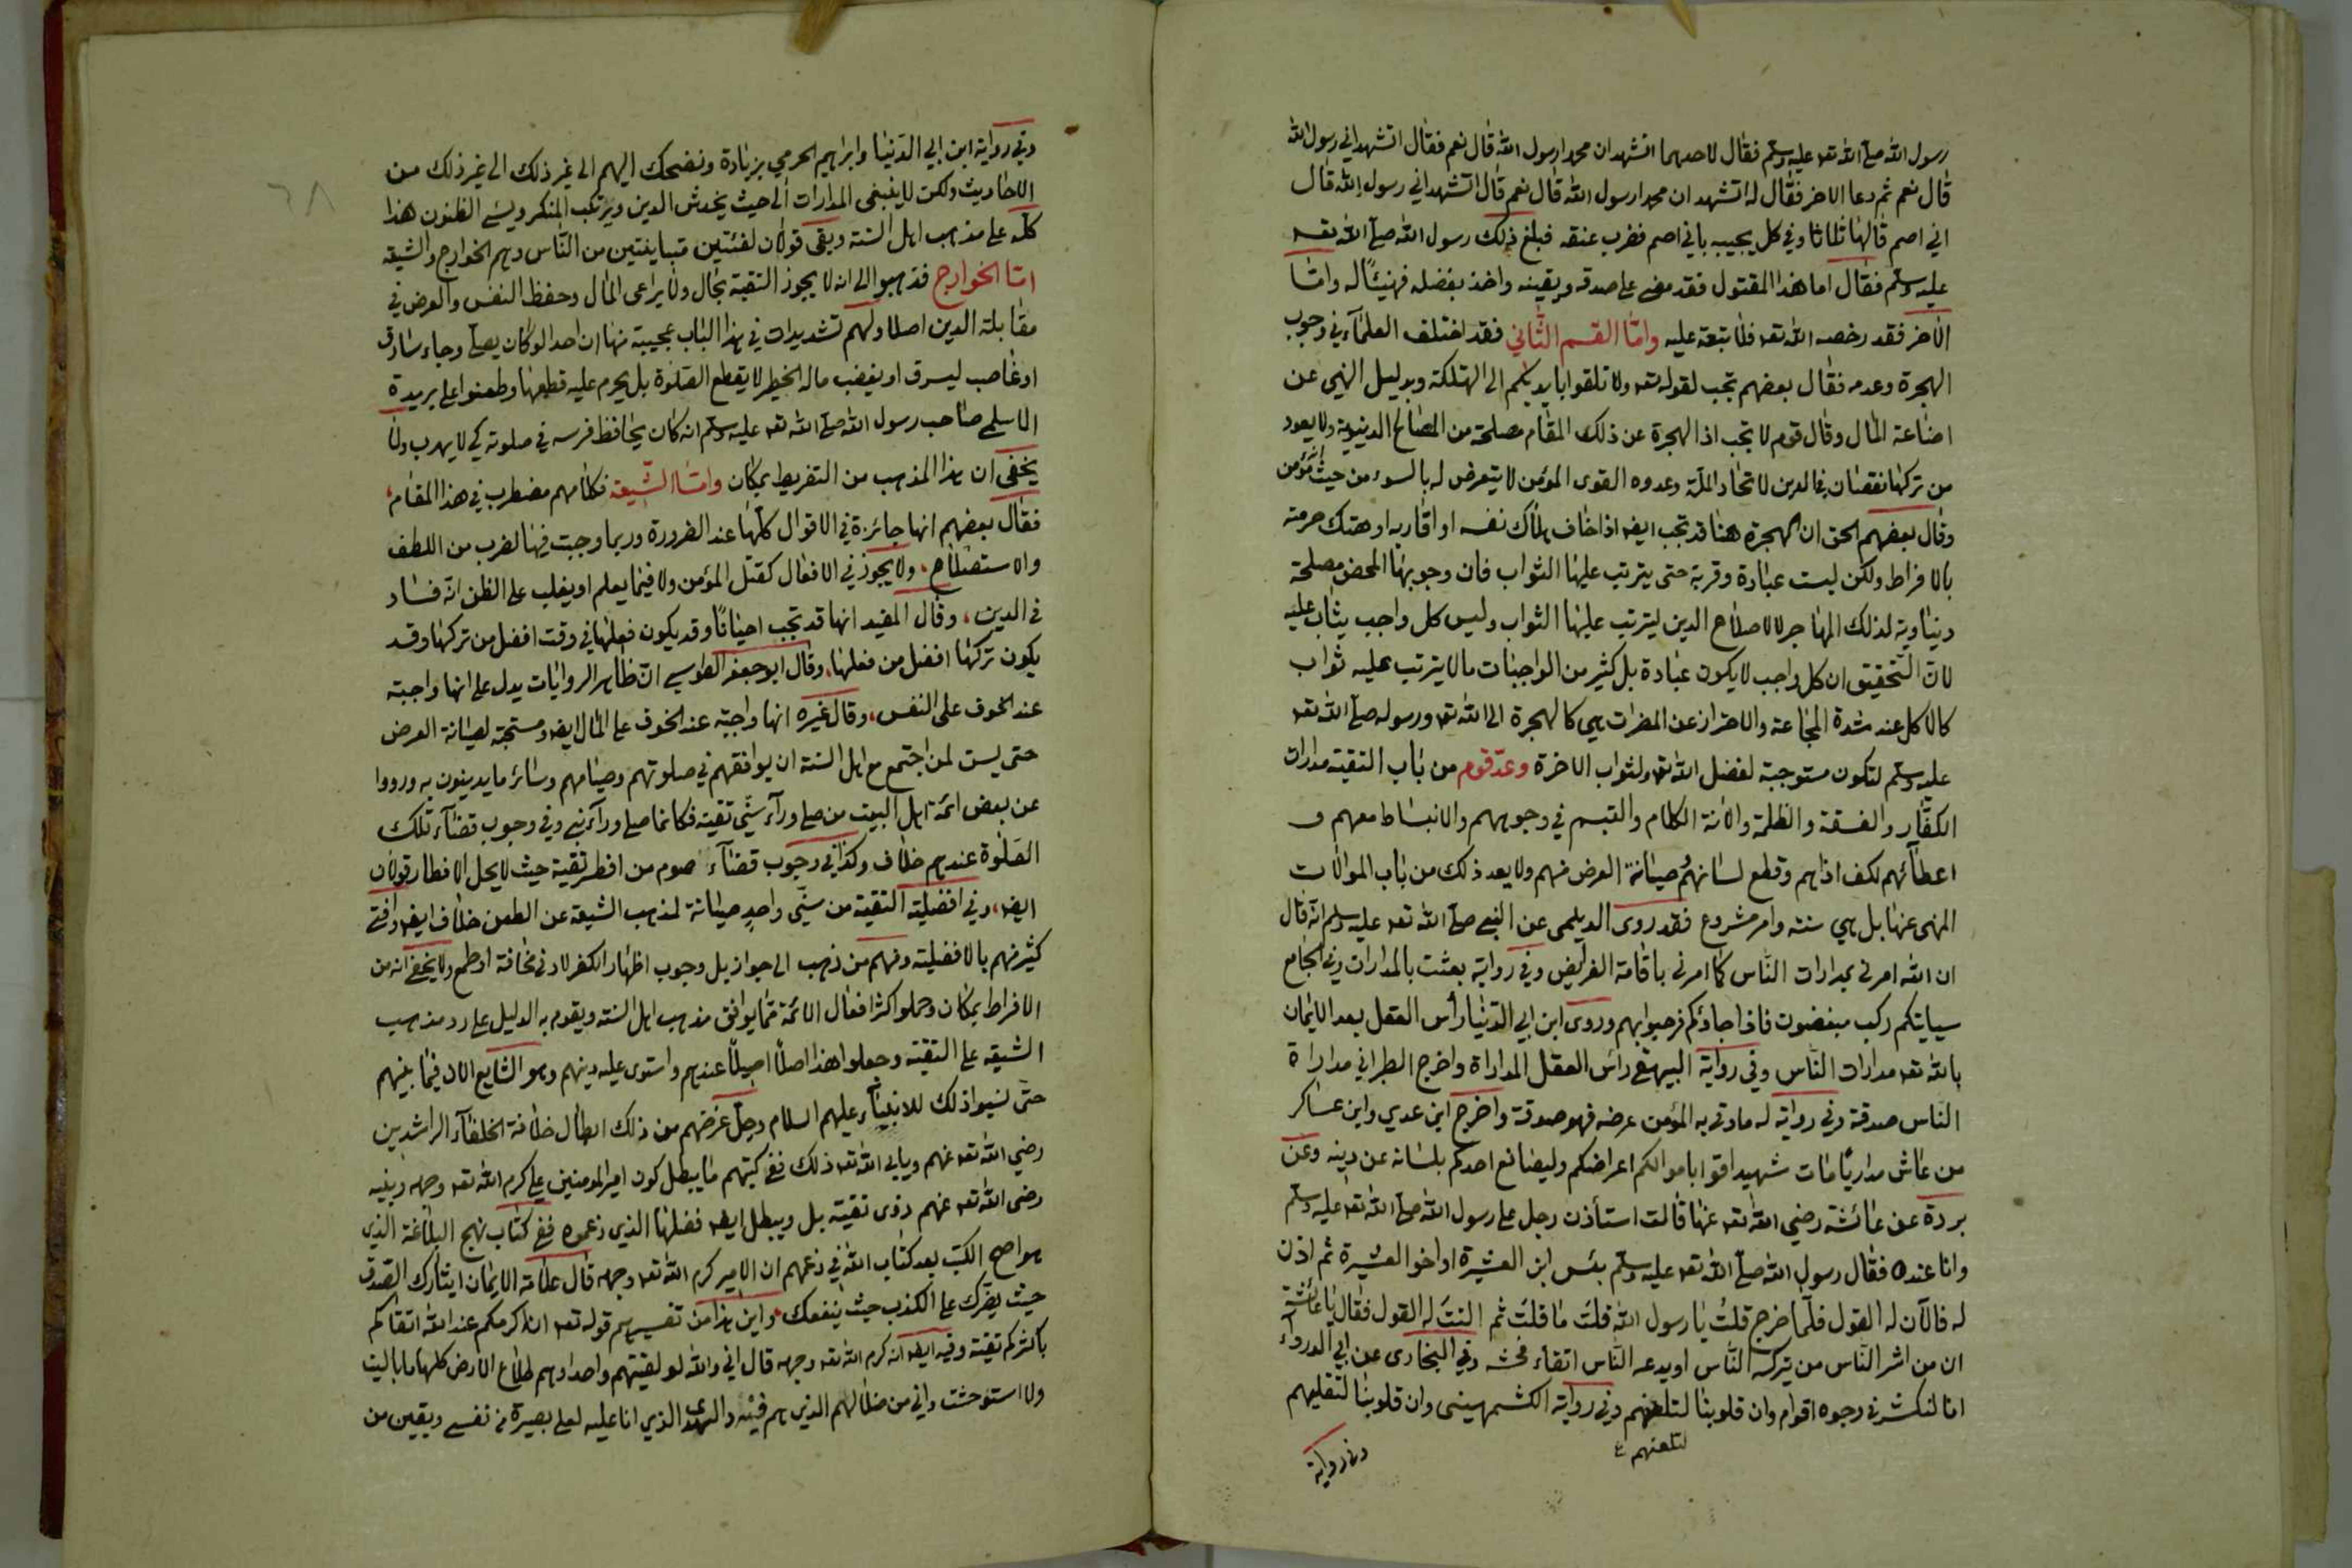 رسول الله صلى الله تعه عليه وسلم فقال لاحدهما اتشهد ان محمدا رسول الله قال نعم فقال اتشهد اني رسول الله
قال نعم ثم دعا الاخر فقال له اتشهد ان محمدا رسول الله قال نعم قال اتشهد اني رسول الله قال
اني اصم قالها ثلاثا وفي كل يجيبه باني اصم فضرب عنقه فبلغ ذلك رسول الله صلى الله تعه
عليه وسلم فقال اما هذا المقتول فقد مضى على صدقه ويقينه واخذ بفضله فهنيئا له واما
الاخر فقد رخصه الله تعه فلا تبعة عليه واما القسم الثاني فقد اختلف العلماء في وجوب
الهجرة وعدمه فقال بعضهم تجب لقوله تعه ولا تلقوا بايديكم الى التهلكة وبدليل النهي عن
اضاعة المال وقال قوم لا تجب اذ الهجرة عن ذلك المقام مصلحة من المصالح الدنيوية ولا يعود
من تركها نقصان في الدين لاتحاد الملة وعدوه القوى المؤمن لا يتعرض له بالسوء من حيث انه مؤمن
وقال بعضهم الحق ان الهجرة هنا قد تجب ايضه اذا خاف هلاك نفسه او اقاربه او هتك حرمته
بالافراط ولكن ليست عبادة وقربة حتى يترتب عليها الثواب فان وجوبها المحض مصلحة
دنياوية لذلك المهاجر لا لاصلاح الدين ليترتب عليها الثواب وليس كل واجب يثاب عليه
لان التحقيق ان كل واجب لا يكون عبادة بل كثير من الواجبات ما لا يترتب عليه ثواب
كالاكل عند شدة المجاعة والاحتراز عن المضرات هي كالهجرة الى الله تعه ورسوله صلى الله تعه
عليه وسلم لتكون مستوجبة لفضل الله تعه ولثواب الاخرة وعد قوم من باب التقية مدارات
الكفار والفسقة والظلمة والانة الكلام والتبسم في وجوههم والانبساط معهم و
اعطائهم لكف اذاهم وقطع لسانهم وصيانة العرض منهم ولا يعد ذلك من باب الموالات
المنهى عنها بل هي سنة وامر مشروع فقد روى الديلمى عن النبي صلى الله تعه عليه وسلم انه قال
ان الله امرني بمدارات الناس كما امرني باقامة الفرايض وفي رواية بعثت بالمدارات وفي الجامع
سيايتكم ركب مبغضون فاذا جاؤكم فرحبوا بهم وروى ابن ابي الدنيا رأس العقل بعد الايمان
بالله تعه مدارات الناس وفي رواية البيهقي رأس العقل المداراة واخرج الطبراني مداراة
الناس صدقة وفي رواية له ما وقى به المؤمن عرضه فهو صدقة واخرج ابن عدي وابن عساكر
من عاش مداريا مات شهيدا قوا باموالكم اعراضكم وليصانع احدكم بلسانه عن دينه وعن
بردة عن عائشة رضي الله تعه عنها قالت استأذن رجل على رسول الله صلى الله تعه عليه وسلم
وانا عنده فقال رسول الله صلى الله تعه عليه وسلم بئس ابن العشيرة او اخو العشيرة ثم اذن
له فالآن له القول فلما خرج قلت يا رسول الله قلت ما قلت ثم النت له القول فقال يا عائشة
ان من اشر الناس من يتركه الناس او يدعه الناس اتقاء فحشه وفي البخارى عن ابي الدرداء
انا لنكشر في وجوه اقوام وان قلوبنا لتلعنهم وفي رواية الكشمهينى وان قلوبنا لتقليهم
لتلعنهم
وفي رواية
٦٨
وفي رواية ابن ابي الدنيا وابراهيم الحرمي بزيادة ونضحك اليهم الى غير ذلك الى غير ذلك من
الاحاديث ولكن لا ينبغي المدارات الى حيث يخدش الدين ويرتكب المنكر ويسيء الظنون هذا
كله على مذهب اهل السنة وبقى قولان لفئتين متباينتين من الناس وهم الخوارج والشيعة
اما الخوارج فذهبوا الى انه لا يجوز التقية بحال ولا يراعى المال وحفظ النفس والعرض في
مقابلة الدين اصلا ولهم تشديدات في هذا الباب عجيبة منها ان احدا لو كان يصلى وجاء سارق
او غاصب ليسرق او يغصب ماله الخطير لا يقطع الصلوة بل يحرم عليه قطعها وطعنوا على بريدة
الاسلمي صاحب رسول الله صلى الله تعه عليه وسلم انه كان يحافظ فرسه في صلوته كي لا يهرب ولا
يخفى ان هذا المذهب من التفريط بمكان واما الشيعة فكلامهم مضطرب في هذا المقام،
فقال بعضهم انها جائزة في الاقوال كلها عند الضرورة وربما وجبت فيها لضرب من اللطف
والاستصلاح، ولا يجوز في الافعال كقتل المؤمن ولا فيما يعلم او يغلب على الظن انه فساد
في الدين، وقال المفيد انها قد تجب احيانا وقد يكون فعلها في وقت افضل من تركها وقد
يكون تركها افضل من فعلها، وقال ابو جعفر الطوسي ان ظاهر الروايات يدل على انها واجبة
عند الخوف على النفس، وقال غيره انها واجبة عند الخوف على المال ايضه ومستحبة لصيانة العرض
حتى يسن لمن اجتمع مع اهل السنة ان يوافقهم في صلوتهم وصيامهم وسائر ما يدينون به ورووا
عن بعض ائمة اهل البيت من صلى وراء سني تقية فكانما صلى وراء نبي وفي وجوب قضاء تلك
الصلوة عندهم خلاف وكذا في وجوب قضاء صوم من افطر تقية حيث لا يحل الافطار قولان
ايضه، وفي افضلية التقية من سني واحد صيانة لمذهب الشيعة عن الطعن خلاف ايضه وافتى
كثير منهم بالافضلية ومنهم من ذهب الى جواز بل وجوب اظهار الكفر لادنى مخافة او طمع ولا يخفى انه من
الافراط بمكان وحملوا اكثر افعال الائمة مما يوافق مذهب اهل السنة ويقوم به الدليل على رد مذهب
الشيعة على التقية وجعلوا هذا اصلا اصيلا عندهم واستوى عليه دينهم وهو الشايع الان فيما بينهم
حتى نسبوا ذلك للانبياء عليهم السلام وجل غرضهم من ذلك ابطال خلافة الخلفاء الراشدين
رضي الله تعه عنهم ويابى الله تعه ذلك ففي كتبهم ما يبطل كون امير المؤمنين علي كرم الله تعه وجهه وبنيه
رضى الله تعه عنهم ذوى تقية بل ويبطل ايضه فضلها الذي زعموه ففي كتاب نهج البلاغة الذي
هو اصح الكتب بعد كتاب الله في زعمهم ان الامير كرم الله تعه وجهه قال علامة الايمان ايثارك الصدق
حيث يضرك على الكذب حيث ينفعك، واين هذا من تفسيرهم قوله تعه ان اكرمكم عند الله اتقاكم
باكثركم تقية وفيه ايضه انه كرم الله تعه وجهه قال اني والله لو لقيتهم واحدا وهم طلاع الارض كلها ما باليت
ولا استوحشت واني من ضلالهم الذي هم فيه والهدى الذي انا عليه لعلى بصيرة من نفسي ويقين من